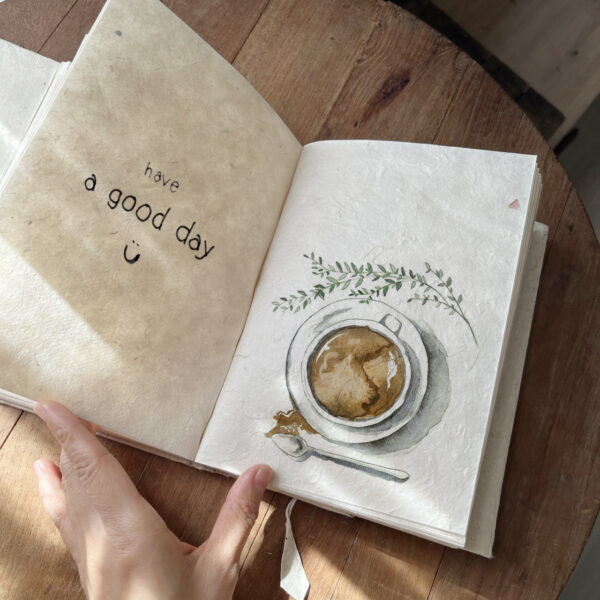 have
a good day